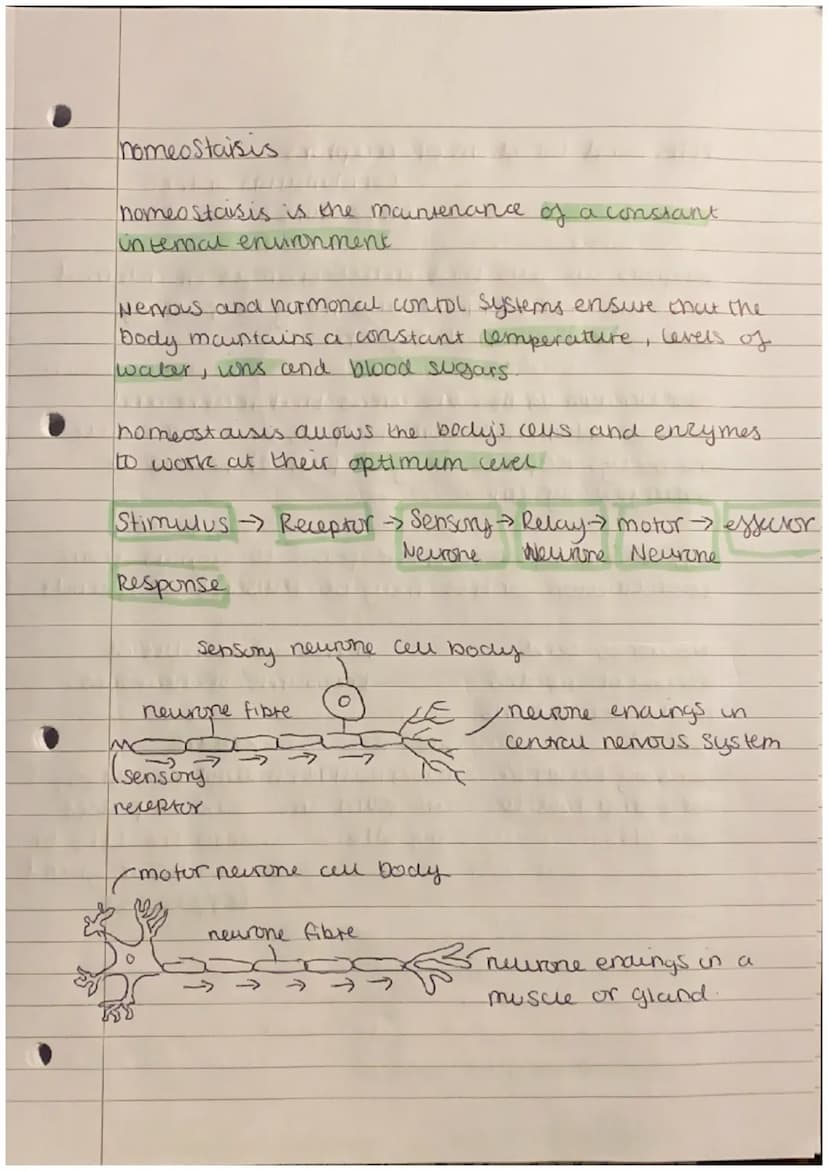 homeostaisis
homeostaisis is the maintenance of a constant
internal environment
Nervous and hormonal control systems ensure that the
body maintains a constant temperature, levels of
water, ions and blood sugars.
homeostaisis allows the body's cells and enzymes
to work at their optimum level
Stimulus → Receptor → Sensory → Relay → motor → effector
Neurone Neurone Neurone
Response
sensory neurone cell body
neurone fibre
neurone endings in
central nervous system
sensory
receptor
motor neurone cell body
neurone fibre
neurone endings in a
muscle or gland.